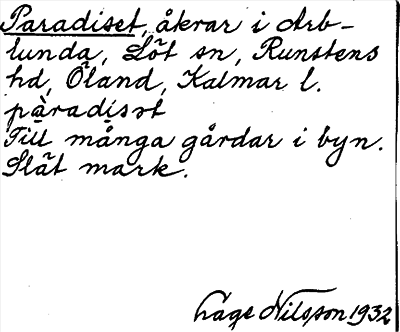 Paradiset, åkrar i Arb-
lunda, Löt sn, Runstens
hd, Öland, Kalmar l.
pàradisət
Till många gårdar i byn.
Slät mark.
Låge Nilsson 1932